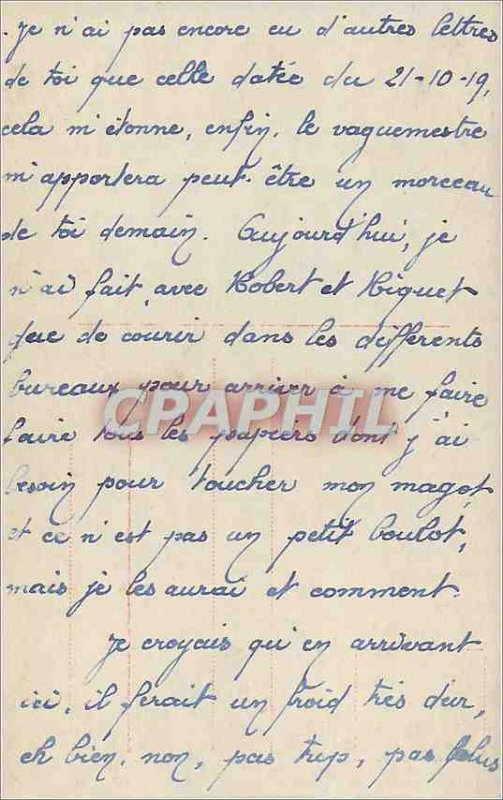 . Je n'ai pas encore eu d'autres lettres
de toi que celle datée du 21-10-19,
cela m'étonne, enfin, le vaguemestre
m'apportera peut-être un morceau
de toi demain. Aujourd'hui, je
n'ai fait, avec Robert et Riquet
que de courir dans les différents
bureaux pour arriver à me faire
faire tous les papiers dont j'ai
besoin pour toucher mon magot,
et ce n'est pas un petit boulot,
mais je les aurai et comment.
Je croyais qu'en arrivant
ici, il ferait un froid très dur,
eh bien, non, pas trop, pas plus
CPAPHIL